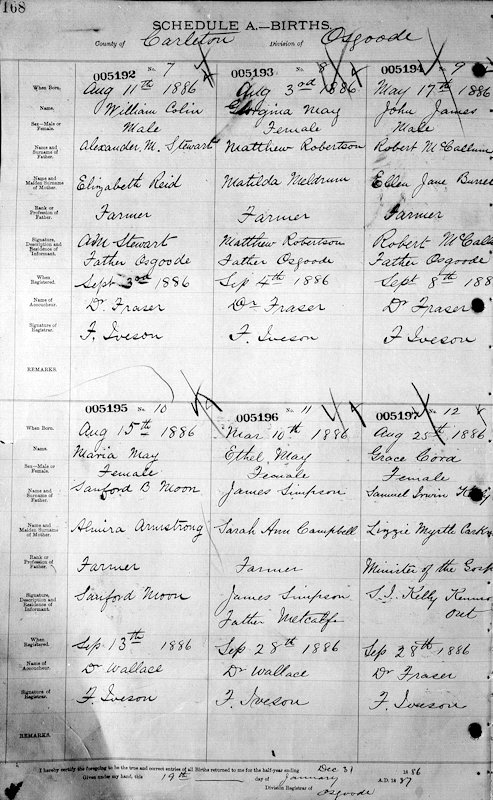 168
SCHEDULE A.—BIRTHS.
County of Carleton Division of Osgoode
005192 No. 7 005193 No. 8 005194 No. 9
When Born. Aug 11th 1886 Aug 3rd 1886 May 17th 1886
Name. William Colin Georgina May John James
Sex—Male or Female. Male Female Male
Name and Surname of Father. Alexander M. Stewart Matthew Robertson Robert McCallum
Name and Maiden Surname of Mother. Elizabeth Reid Matilda Meldrum Ellen Jane
Rank or Profession of Father. Farmer Farmer Farmer
Signature, Description and Residence of Informant. AM Stewart Matthew Robertson Robert McCall
Father Osgoode Father Osgoode Father Osgoode
When Registered. Sept 3rd 1886 Sep 4th 1886 Sept 8th 188
Name of Accoucheur. Dr Fraser Dr Fraser Dr Fraser
Signature of Registrar. F. Iveson F. Iveson F Iveson
REMARKS.
005195 No. 10 005196 No. 11 005197 No. 12
When Born. Aug 15th 1886 Mar 10th 1886 Aug 25th 1886
Name. Maria May Ethel May Grace Cord
Sex—Male or Female. Female Female Female
Name and Surname of Father. Sanford B Moon James Simpson Samuel Irwin
Name and Maiden Surname of Mother. Almira Armstrong Sarah Ann Campbell Lizzie Myrtle
Rank or Profession of Father. Farmer Farmer Minister of the Gosp
Signature, Description and Residence of Informant. Sanford Moon James Simpson S.I. Kelly
Father Metcalfe Ont
When Registered. Sep 13th 1886 Sep 28th 1886 Sep 28th 1886
Name of Accoucheur. Dr Wallace Dr Wallace Dr Fraser
Signature of Registrar. F. Iveson F. Iveson F. Iveson
REMARKS.
I hereby certify the foregoing to be the true and correct entries of all Births returned to me for the half-year ending Dec 31 1886
Given under my hand, this 19th day of January A.D. 1887
Division Registrar of Osgoode